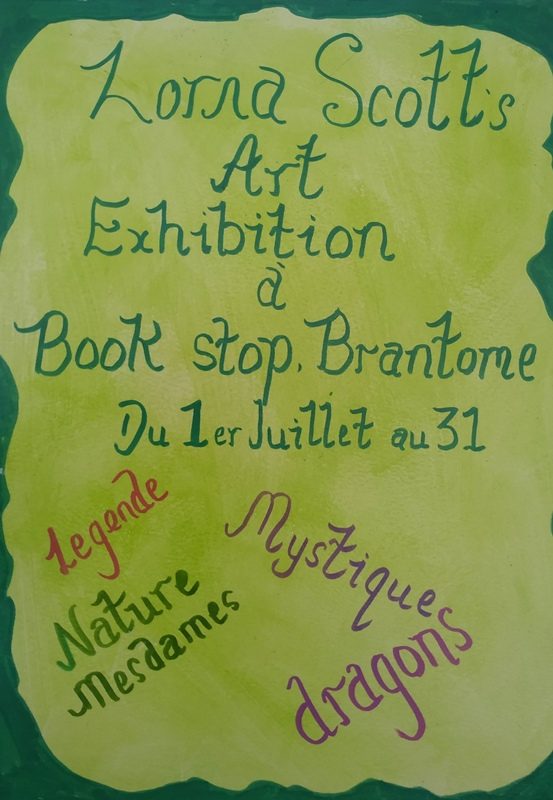 Lorna Scott's
Art
Exhibition
à
Book stop. Brantome
Du 1er Juillet au 31
Legende
Mystiques
dragons
Nature
Mesdames